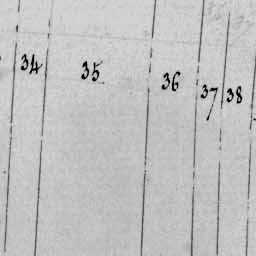 34 35 36 37 38